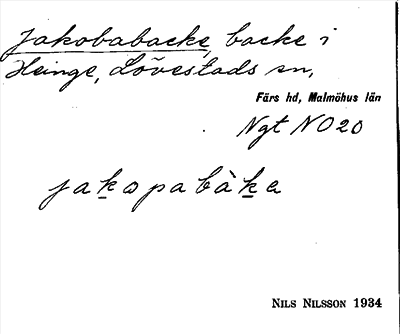 Jakobabacke, backe i
Heinge, Lövestads sn,
Färs hd, Malmöhus län
Ngt NO 20
jakopabàka
NILS NILSSON 1934